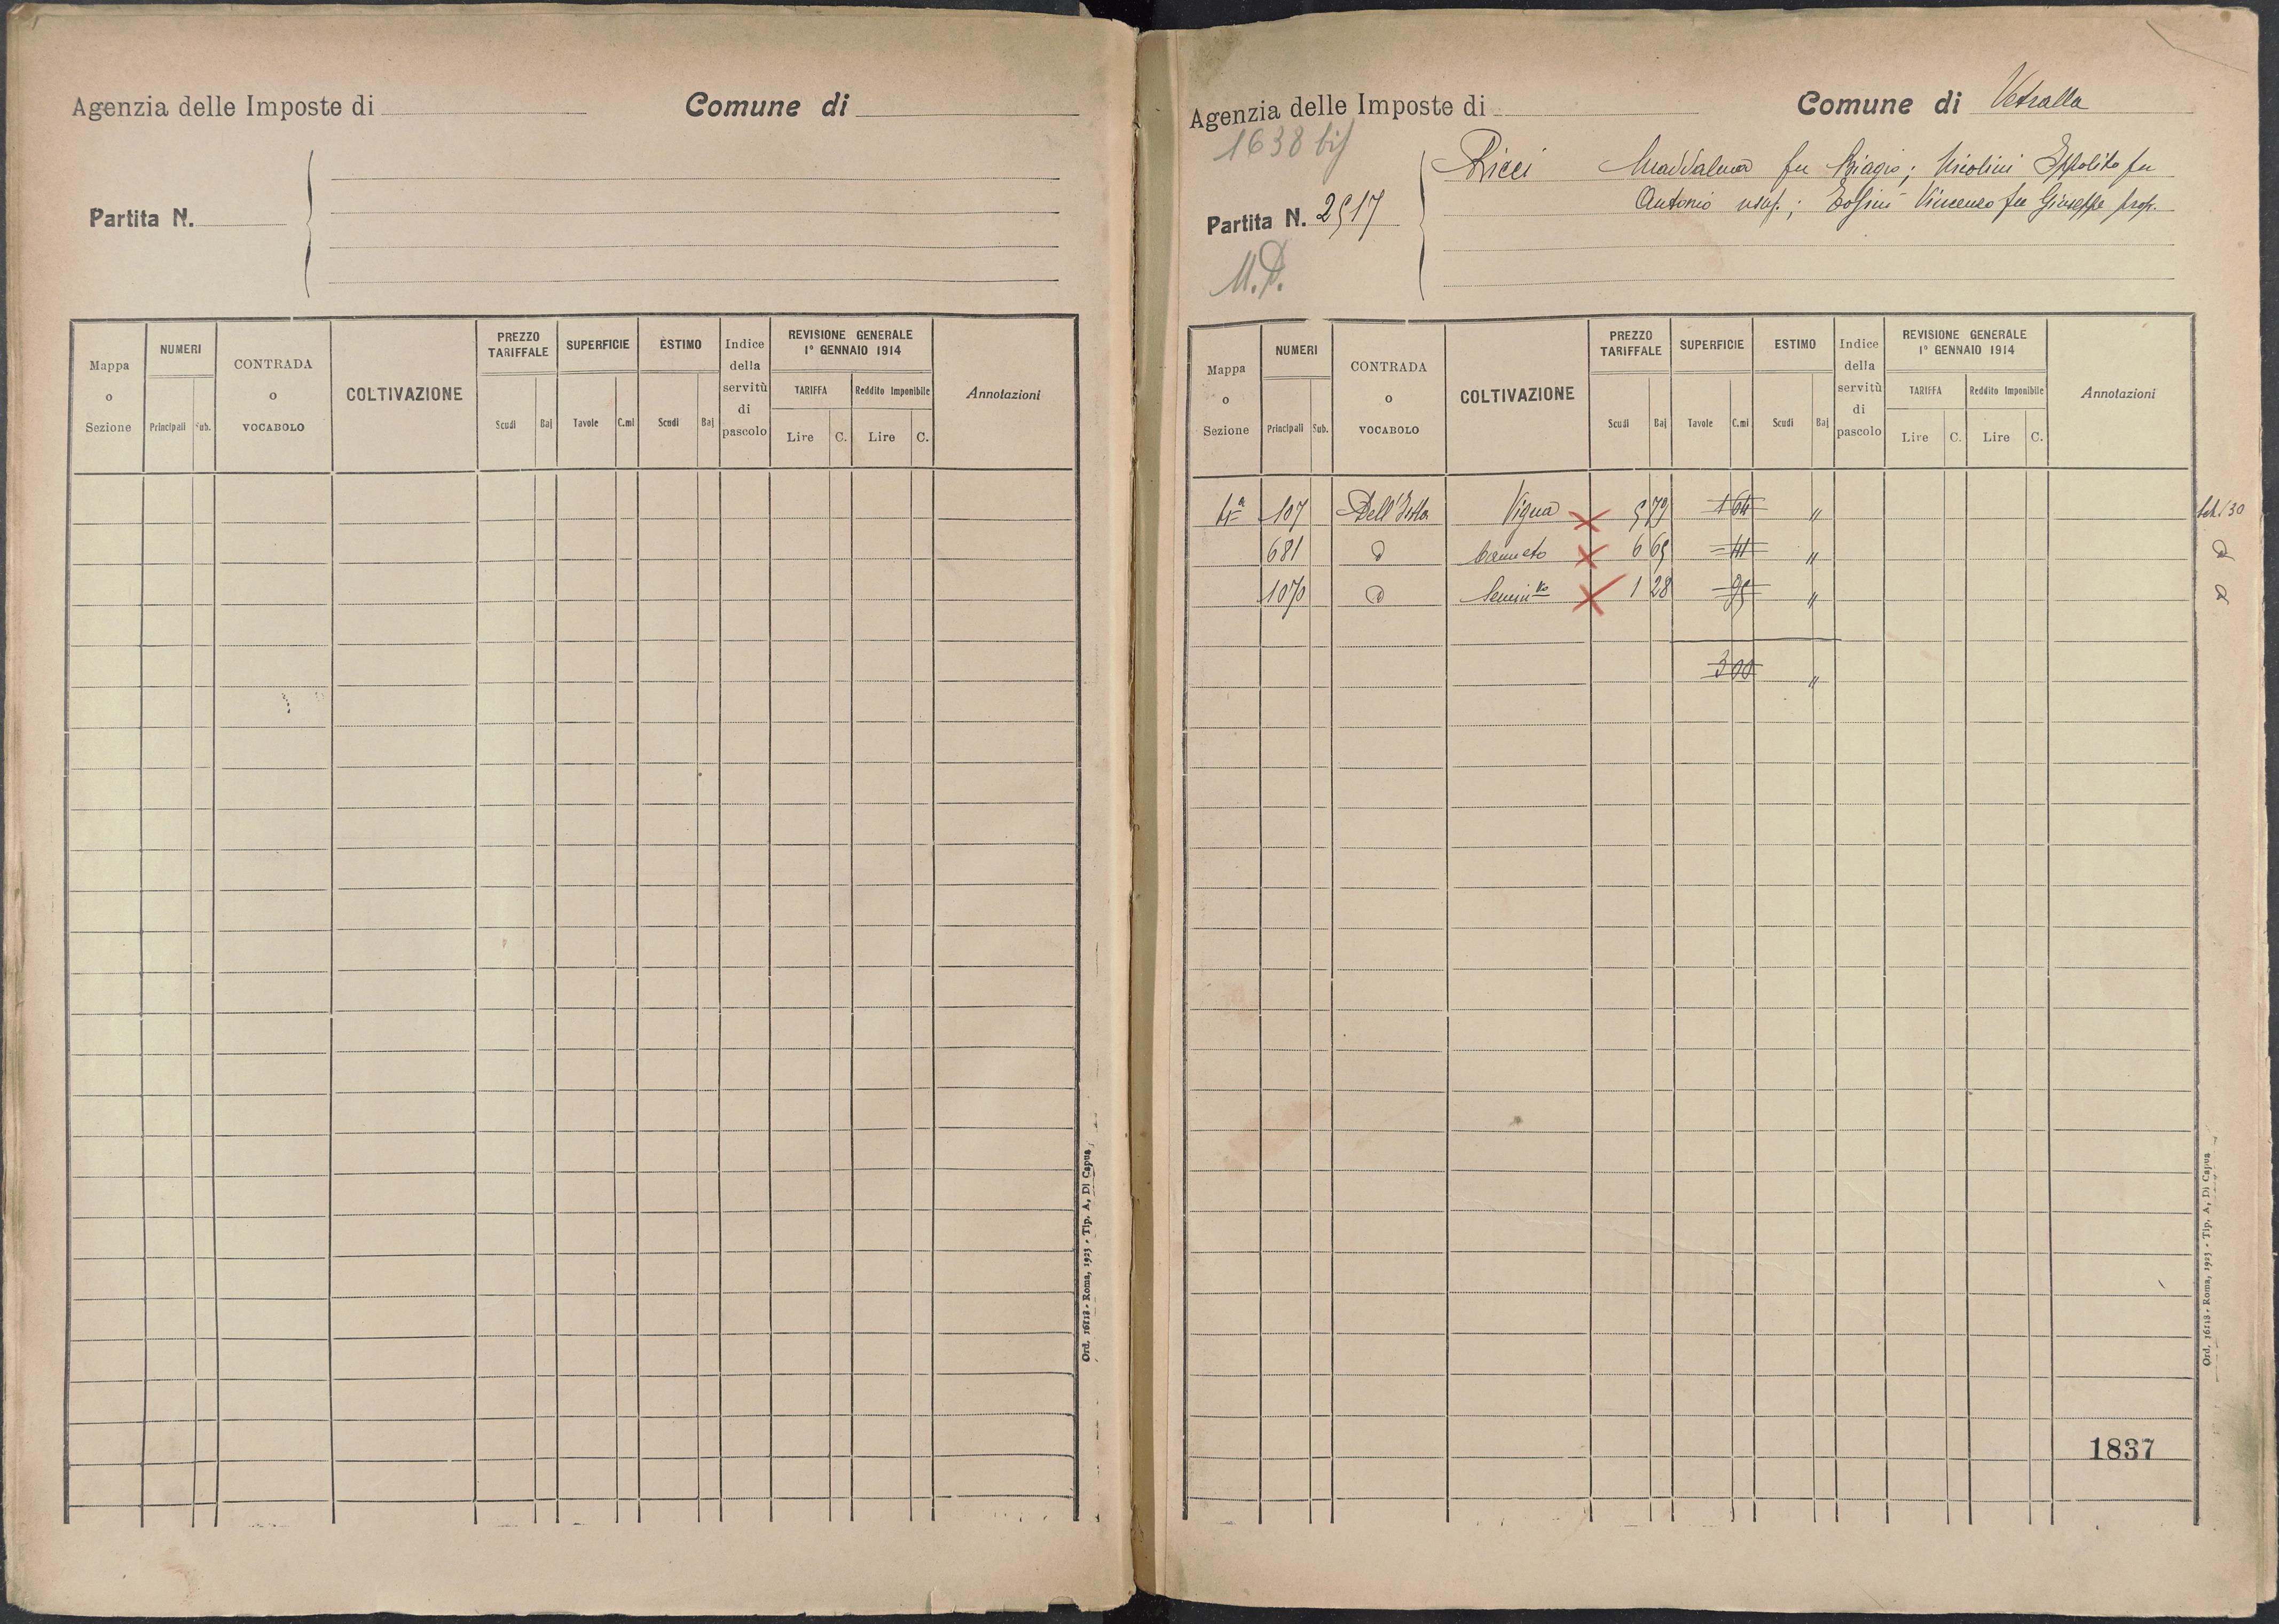 Agenzia delle Imposte di
Comune di
Partita N.
Mappa o Sezione
NUMERI
Principali
Sub.
CONTRADA o VOCABOLO
COLTIVAZIONE
PREZZO TARIFFALE
Scudi
Baj
SUPERFICIE
Tavole
C.mi
ESTIMO
Scudi
Baj
Indice della servitù di pascolo
REVISIONE GENERALE
1° GENNAIO 1914
TARIFFA
Reddito Imponibile
Lire
C.
Lire
C.
Annotazioni
Ord. 16118 - Roma, 1923 - Tip. A. Di Capua
Agenzia delle Imposte di
Comune di Vetralla
1638 bis
Partita N. 2517
M.P.
Ricci Maddalena fu Biagio; Nicolini Ippolito fu
Antonio usuf.; Vincenzo fu Giuseppe prop.
Mappa o Sezione
NUMERI
Principali
Sub.
CONTRADA o VOCABOLO
COLTIVAZIONE
PREZZO TARIFFALE
Scudi
Baj
SUPERFICIE
Tavole
C.mi
ESTIMO
Scudi
Baj
Indice della servitù di pascolo
REVISIONE GENERALE
1° GENNAIO 1914
TARIFFA
Reddito Imponibile
Lire
C.
Lire
C.
Annotazioni
107 Vigna 5 79 1 64 "
681 Canneto 6 65 - 41 "
1070 Semin.vo 1 28 - 95 "
3 00 "
1837
Ord. 16118 - Roma, 1923 - Tip. A. Di Capua